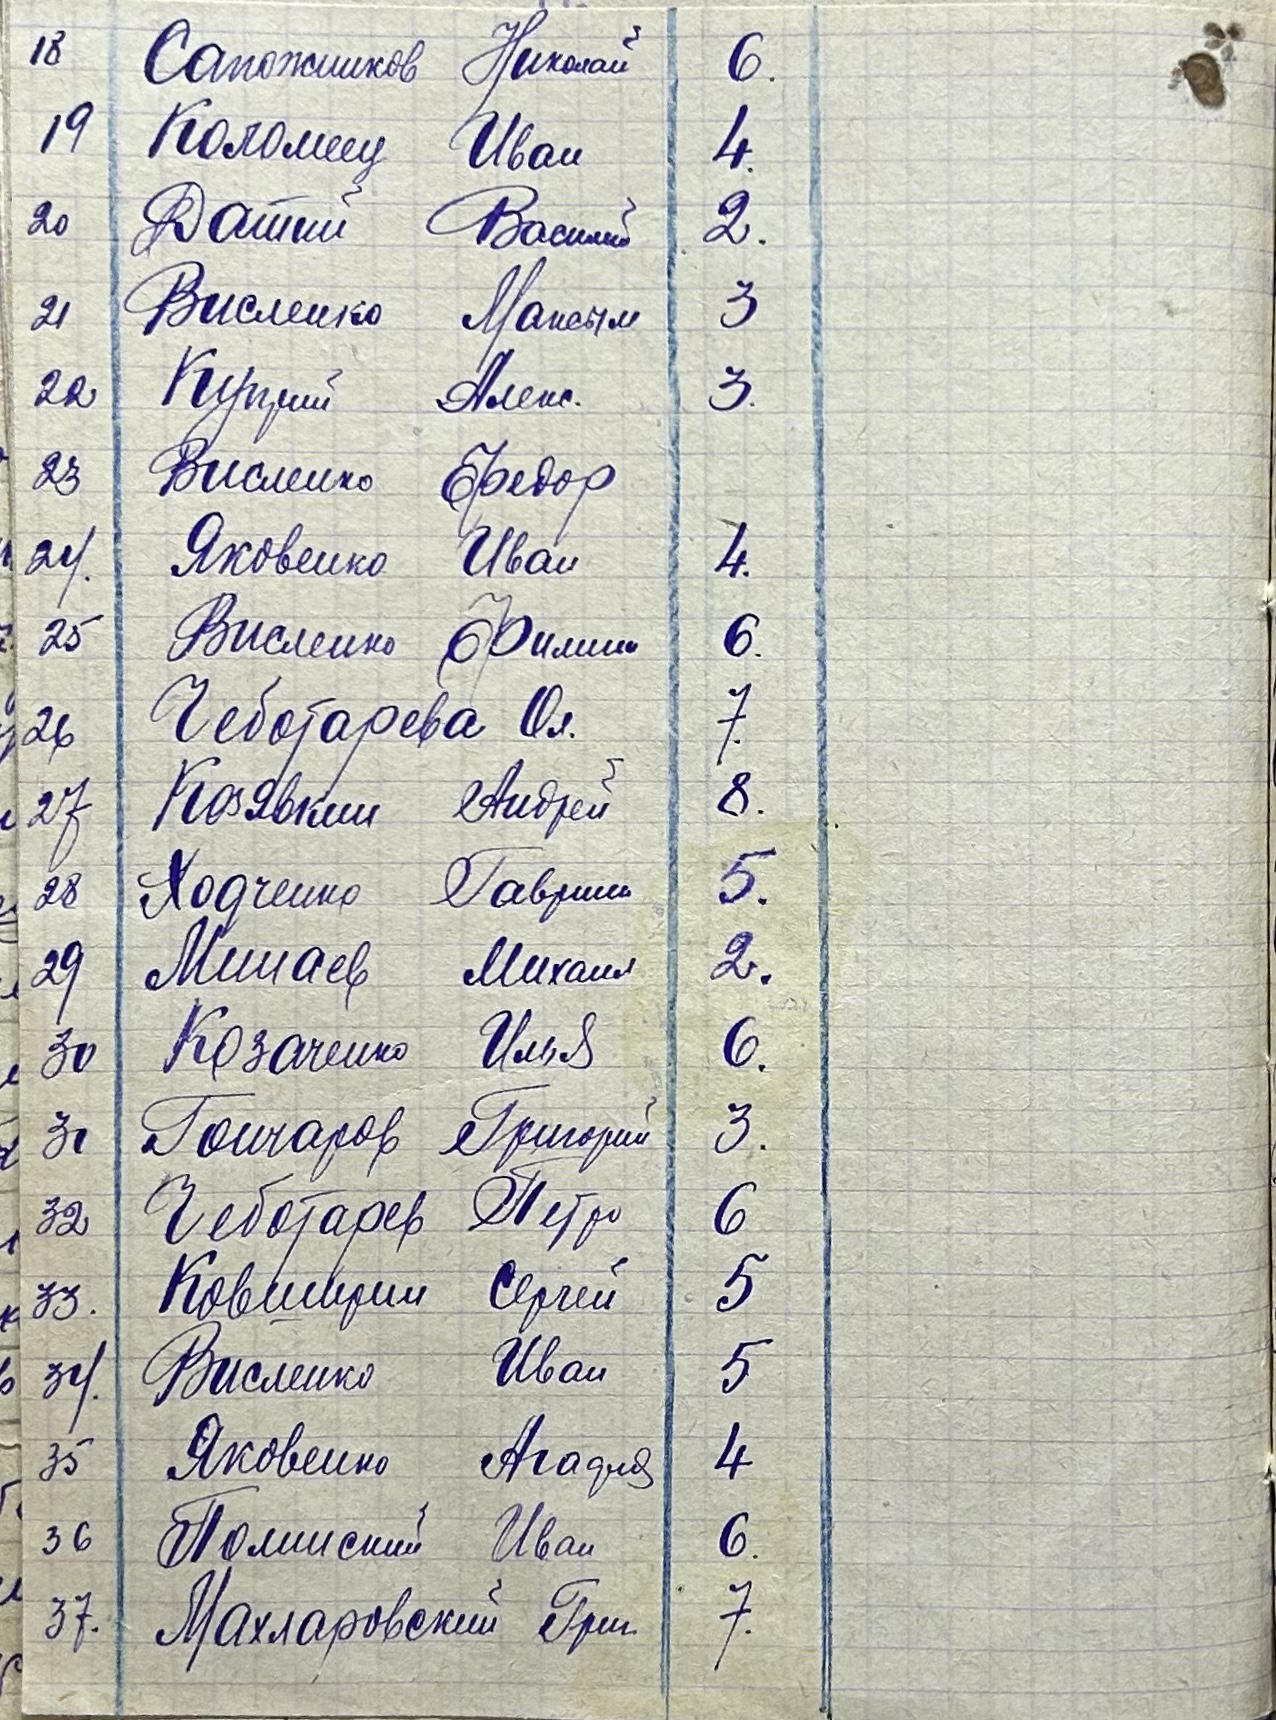 18 Сапожников Николай 6.
19 Коломиец Иван 4.
20 Датий Василий 2.
21 Висленко Максым 3
22 Куприй Алекс. 3.
23 Висленко Федор
24. Яковенко Иван 4.
25 Висленко Филипп 6.
26 Чеботарева Ол. 7.
27 Козявкин Андрей 8.
28 Ходченко Гавриил 5.
29 Минаев Михаил 2.
30 Козаченко Илья 6.
31 Гончаров Григорий 3.
32 Чеботарев Петро 6
33. Сергей 5
34. Висленко Иван 5
35 Яковенко 4
36 Полинский Иван 6.
37. Махларовский Григ. 7.